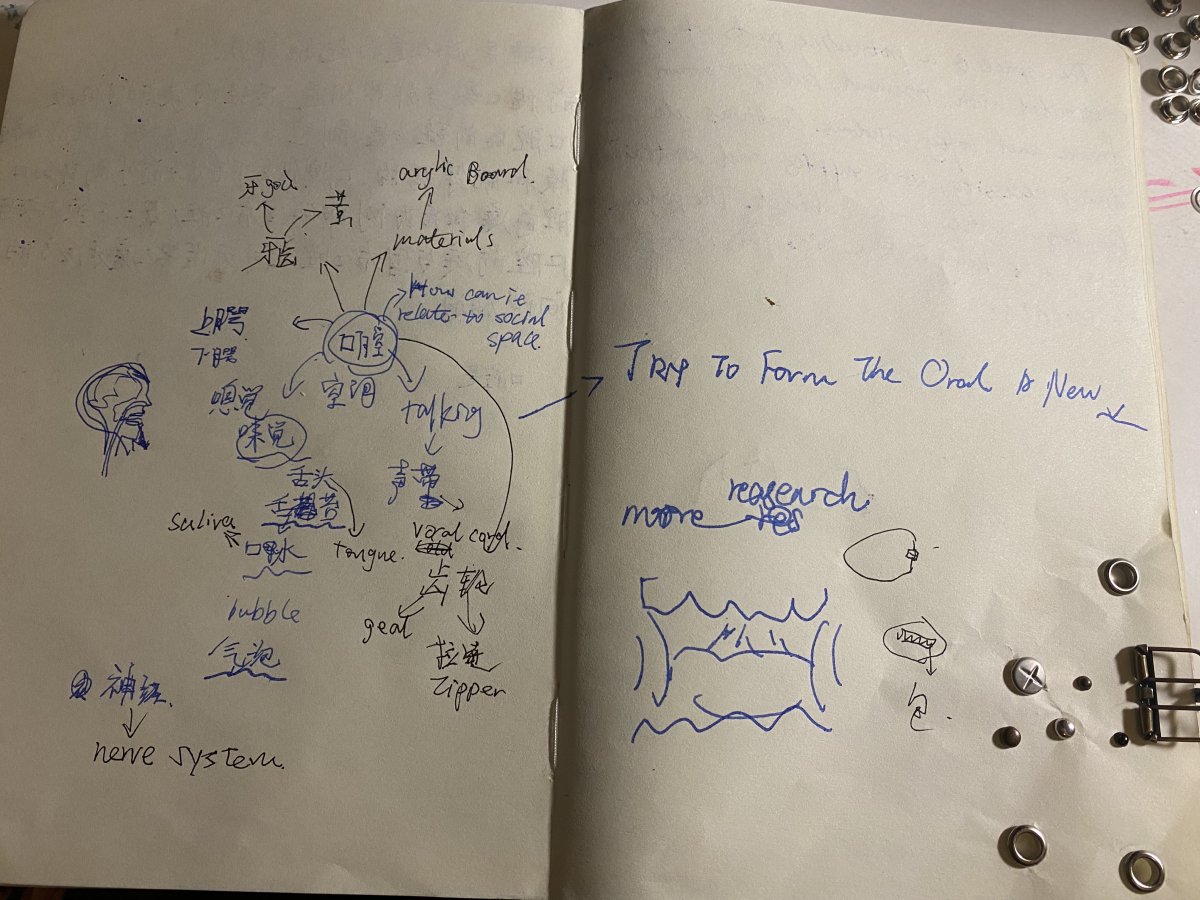 arylic Board.
materials
How can it
relate to social
space.
口腔
上腭
下腭
嗅觉
味觉
talking
声带
舌头
舌苔
saliva
口水
tongue.
voral card.
齿轮
gear
拉链
Zipper
bubble
气泡
神经
nerve system.
Trip To Form The Oral is New
more research
包.